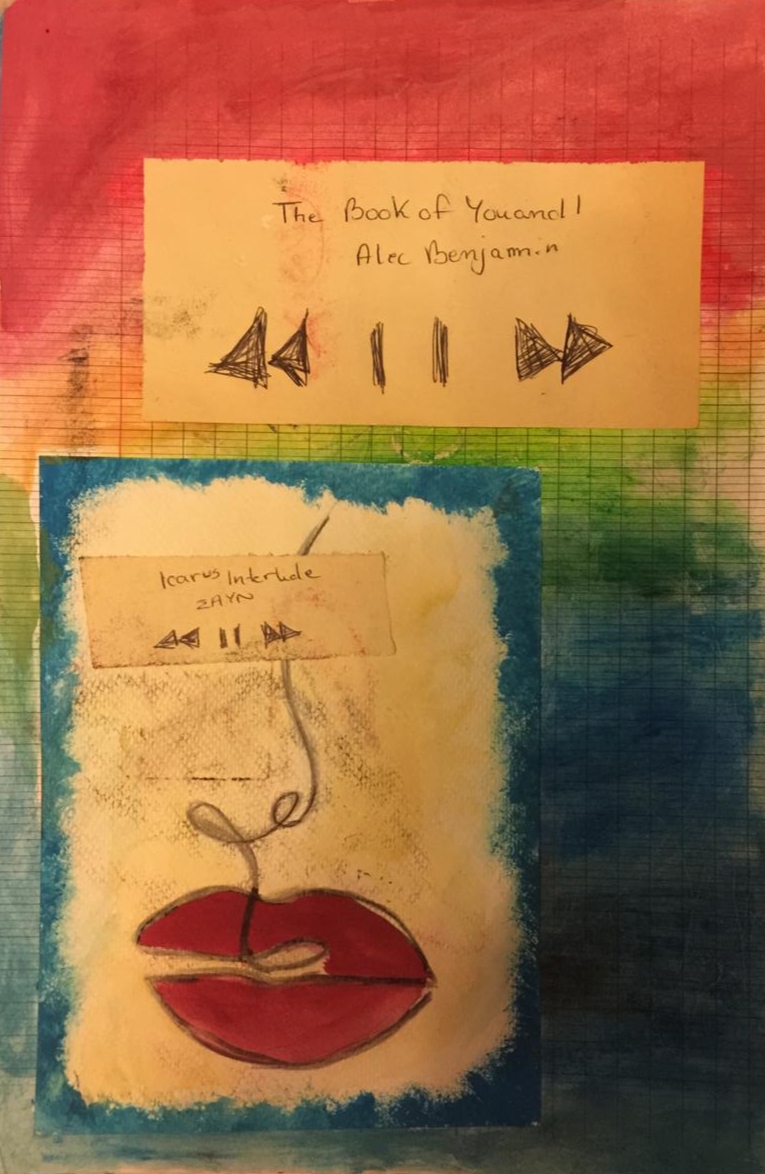 The Book of You and I
Alec Benjamin
Icarus Interlude
ZAYN